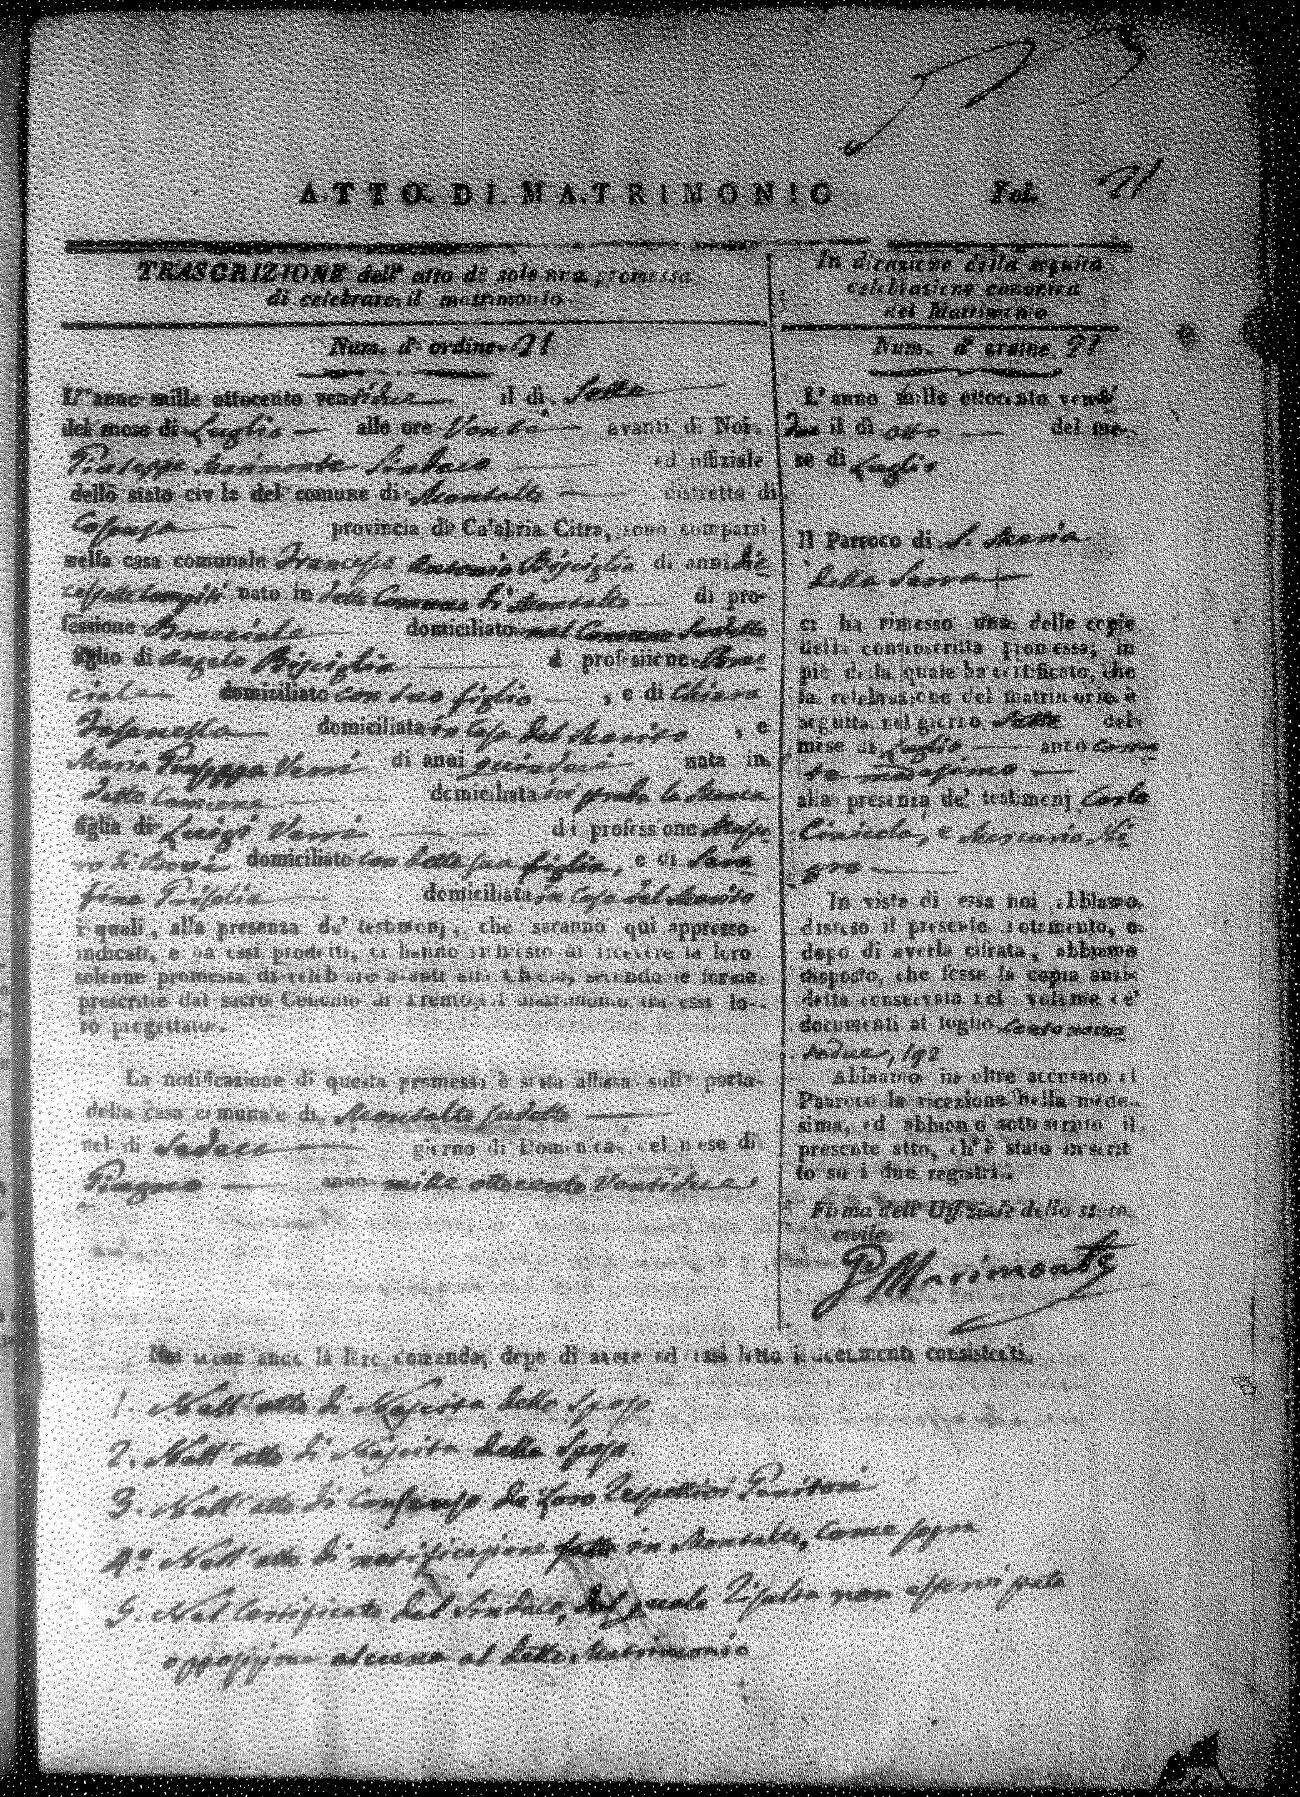 ATTO DI MATRIMONIO Fol. 21
TRASCRIZIONE dell' atto di solenne promessa
di celebrare il matrimonio.
Num. d' ordine 21
L' anno mille ottocento ventidue il dì Sette
del mese di Luglio alle ore Venti avanti di Noi
Giuseppe Marimonte Sindaco ed uffiziale
dello stato civile del comune di Montalto distretto di
Cosenza provincia di Calabria Citra, sono comparsi
nella casa comunale Francesco Antonio Bisciglia di anni die
cessette compiti nato in detto Comune di Montalto di pro-
fessione Bracciale domiciliato nel Comune sudetto
figlio di Angelo Bisciglia di professione Brac
ciale domiciliato con suo figlio, e di Chiara
domiciliata in Casa del Marito, e
Maria Giuseppa Verri di anni quindici nata in
detto Comune domiciliata
figlia di Luigi Verri di professione
domiciliato con detta sua figlia, e di Sera
fina domiciliata in Casa del Marito
i quali, alla presenza de' testimonj, che saranno qui appresso
indicati, e da essi prodotti, ci hanno richiesto di ricevere la loro
solenne promessa di celebrare avanti alla Chiesa, secondo le forme
prescritte dal sacro Concilio di Trento, il matrimonio tra essi lo-
ro progettato.
La notificazione di questa promessa è stata affissa sulla porta
della casa comunale di Montalto sudetto
nel dì Sedeci giorno di Domenica, del mese di
Giugno anno mille ottocento Ventidue
In dicazione della seguita
celebrazione canonica
del Matrimonio
Num. d' ordine 21
L' anno mille ottocento venti
due il dì otto del me-
se di Luglio
Il Parroco di S. Maria
della Serra
ci ha rimesso una delle copie
della controscritta promessa, in
piè della quale ha certificato, che
la celebrazione del matrimonio è
seguita nel giorno Sette del
mese di Luglio anno Corren
te medesimo
alla presenza de' testimonj Carlo
e
gro
In vista di essa noi abbiamo
disteso il presente notamento, e
dopo di averla cifrata, abbiamo
disposto, che fosse la copia anzi-
detta conservata nel volume de'
documenti al foglio Centonova
tadue, 192
Abbiamo in oltre accusato al
Parroco la ricezione della mede-
sima, ed abbiamo sottoscritto il
presente atto, ch' è stato inscrit-
to su i due registri.
Firma dell' Uffiziale dello stato
civile.
G Marimonte
Noi secondando la loro domanda, dopo di avere ad essi letto i documenti consistenti.
1. Nell' atto di Nascita dello Sposo
2. Nell' atto di Nascita della Sposa
3. Nell' atto di Consenso de loro respettivi Genitori
4.° Nell' atto di notificazione fatta in Montalto, come sopra
5. Nel Certificato del Sindaco, dal quale risulta non esservi fatta
opposizione alcuna al detto Matrimonio